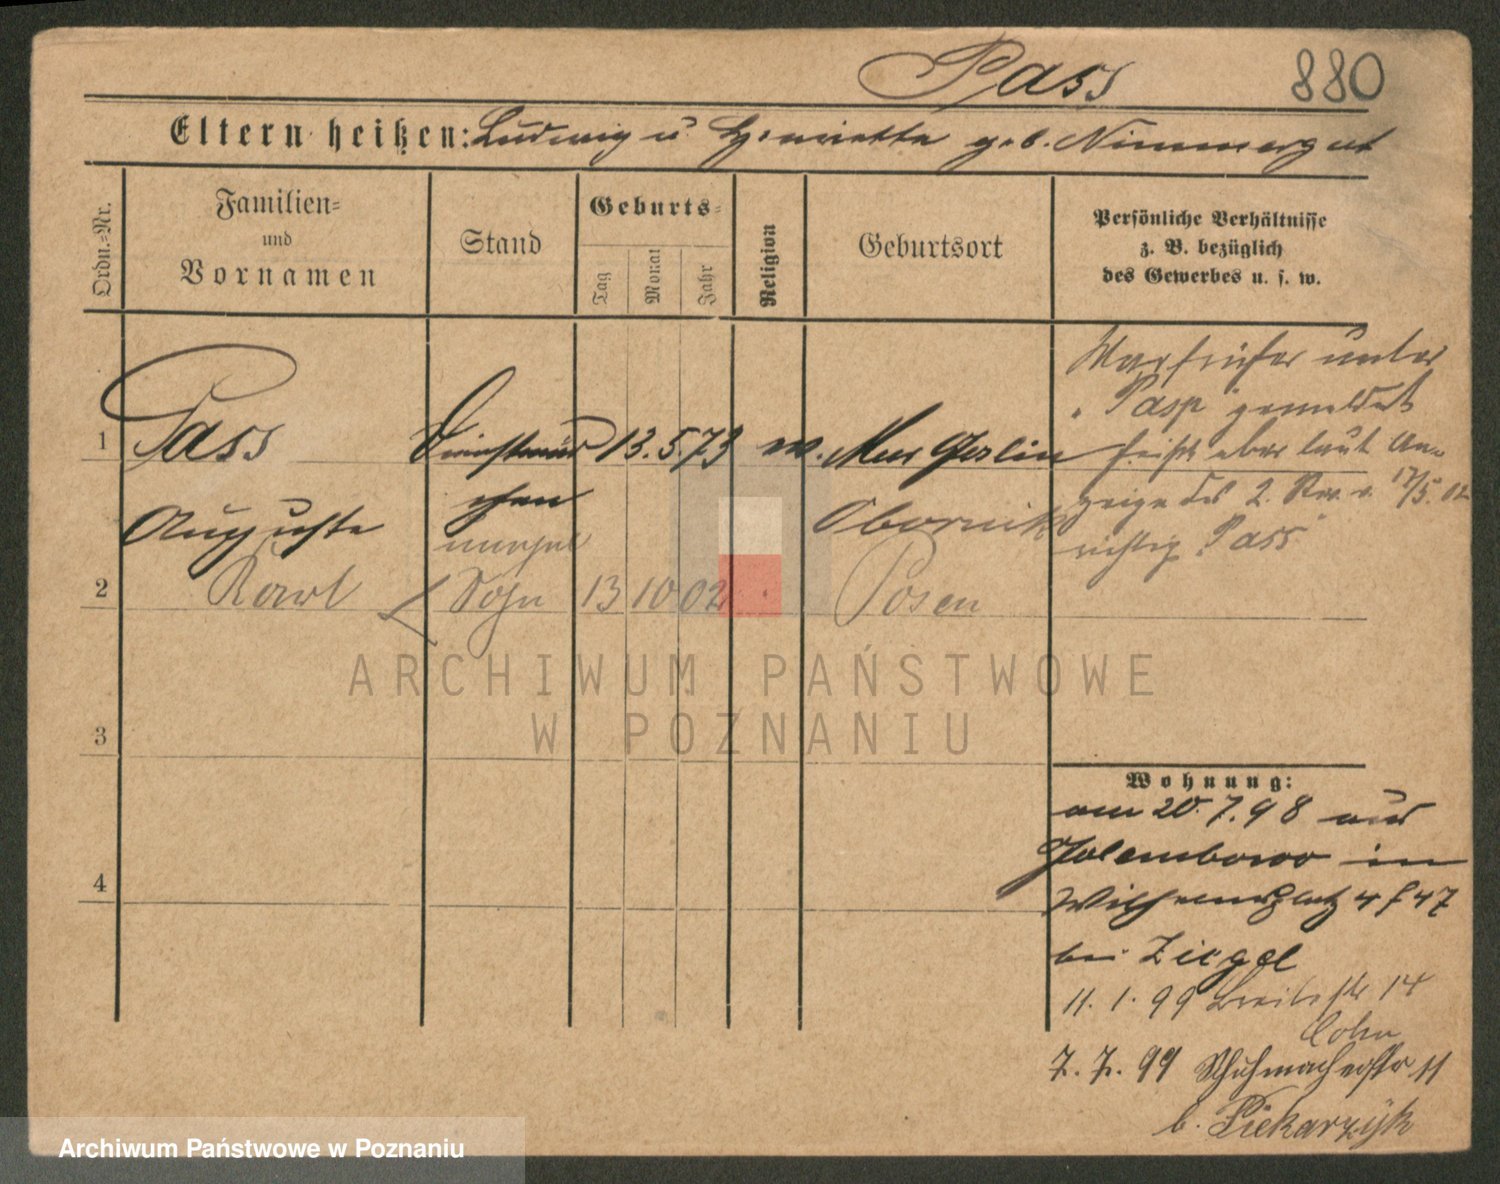 Pass 880
Eltern heißen: Ludwig u Henriette geb. Nimmergut
Ordn.=Nr.
Familien=
und
Vornamen
Stand
Geburts=
Tag
Monat
Jahr
Religion
Geburtsort
Persönliche Verhältnisse
z. B. bezüglich
des Gewerbes u. s. w.
1 Pass Dienstmäd 13. 5. 73 ev. Neu Goslin
chen
Auguste Obornik
2 Karl Sohn 13 10 02 Posen
3
4
War früher unter
"Pasp" gemeldet
heißt aber laut An=
zeige des 2. Rev. v. 17/5. 02
richtig "Pass"
Wohnung:
am 20. 7. 98 aus
Golembowo in
Wilhelmsplatz 4 f 47
bei Ziegel
11. 1. 99 Breitestr 14
Cohn
7. 7. 99 Schuhmacherstr 11
b. Piekarzyk
ARCHIWUM PAŃSTWOWE
W POZNANIU
Archiwum Państwowe w Poznaniu